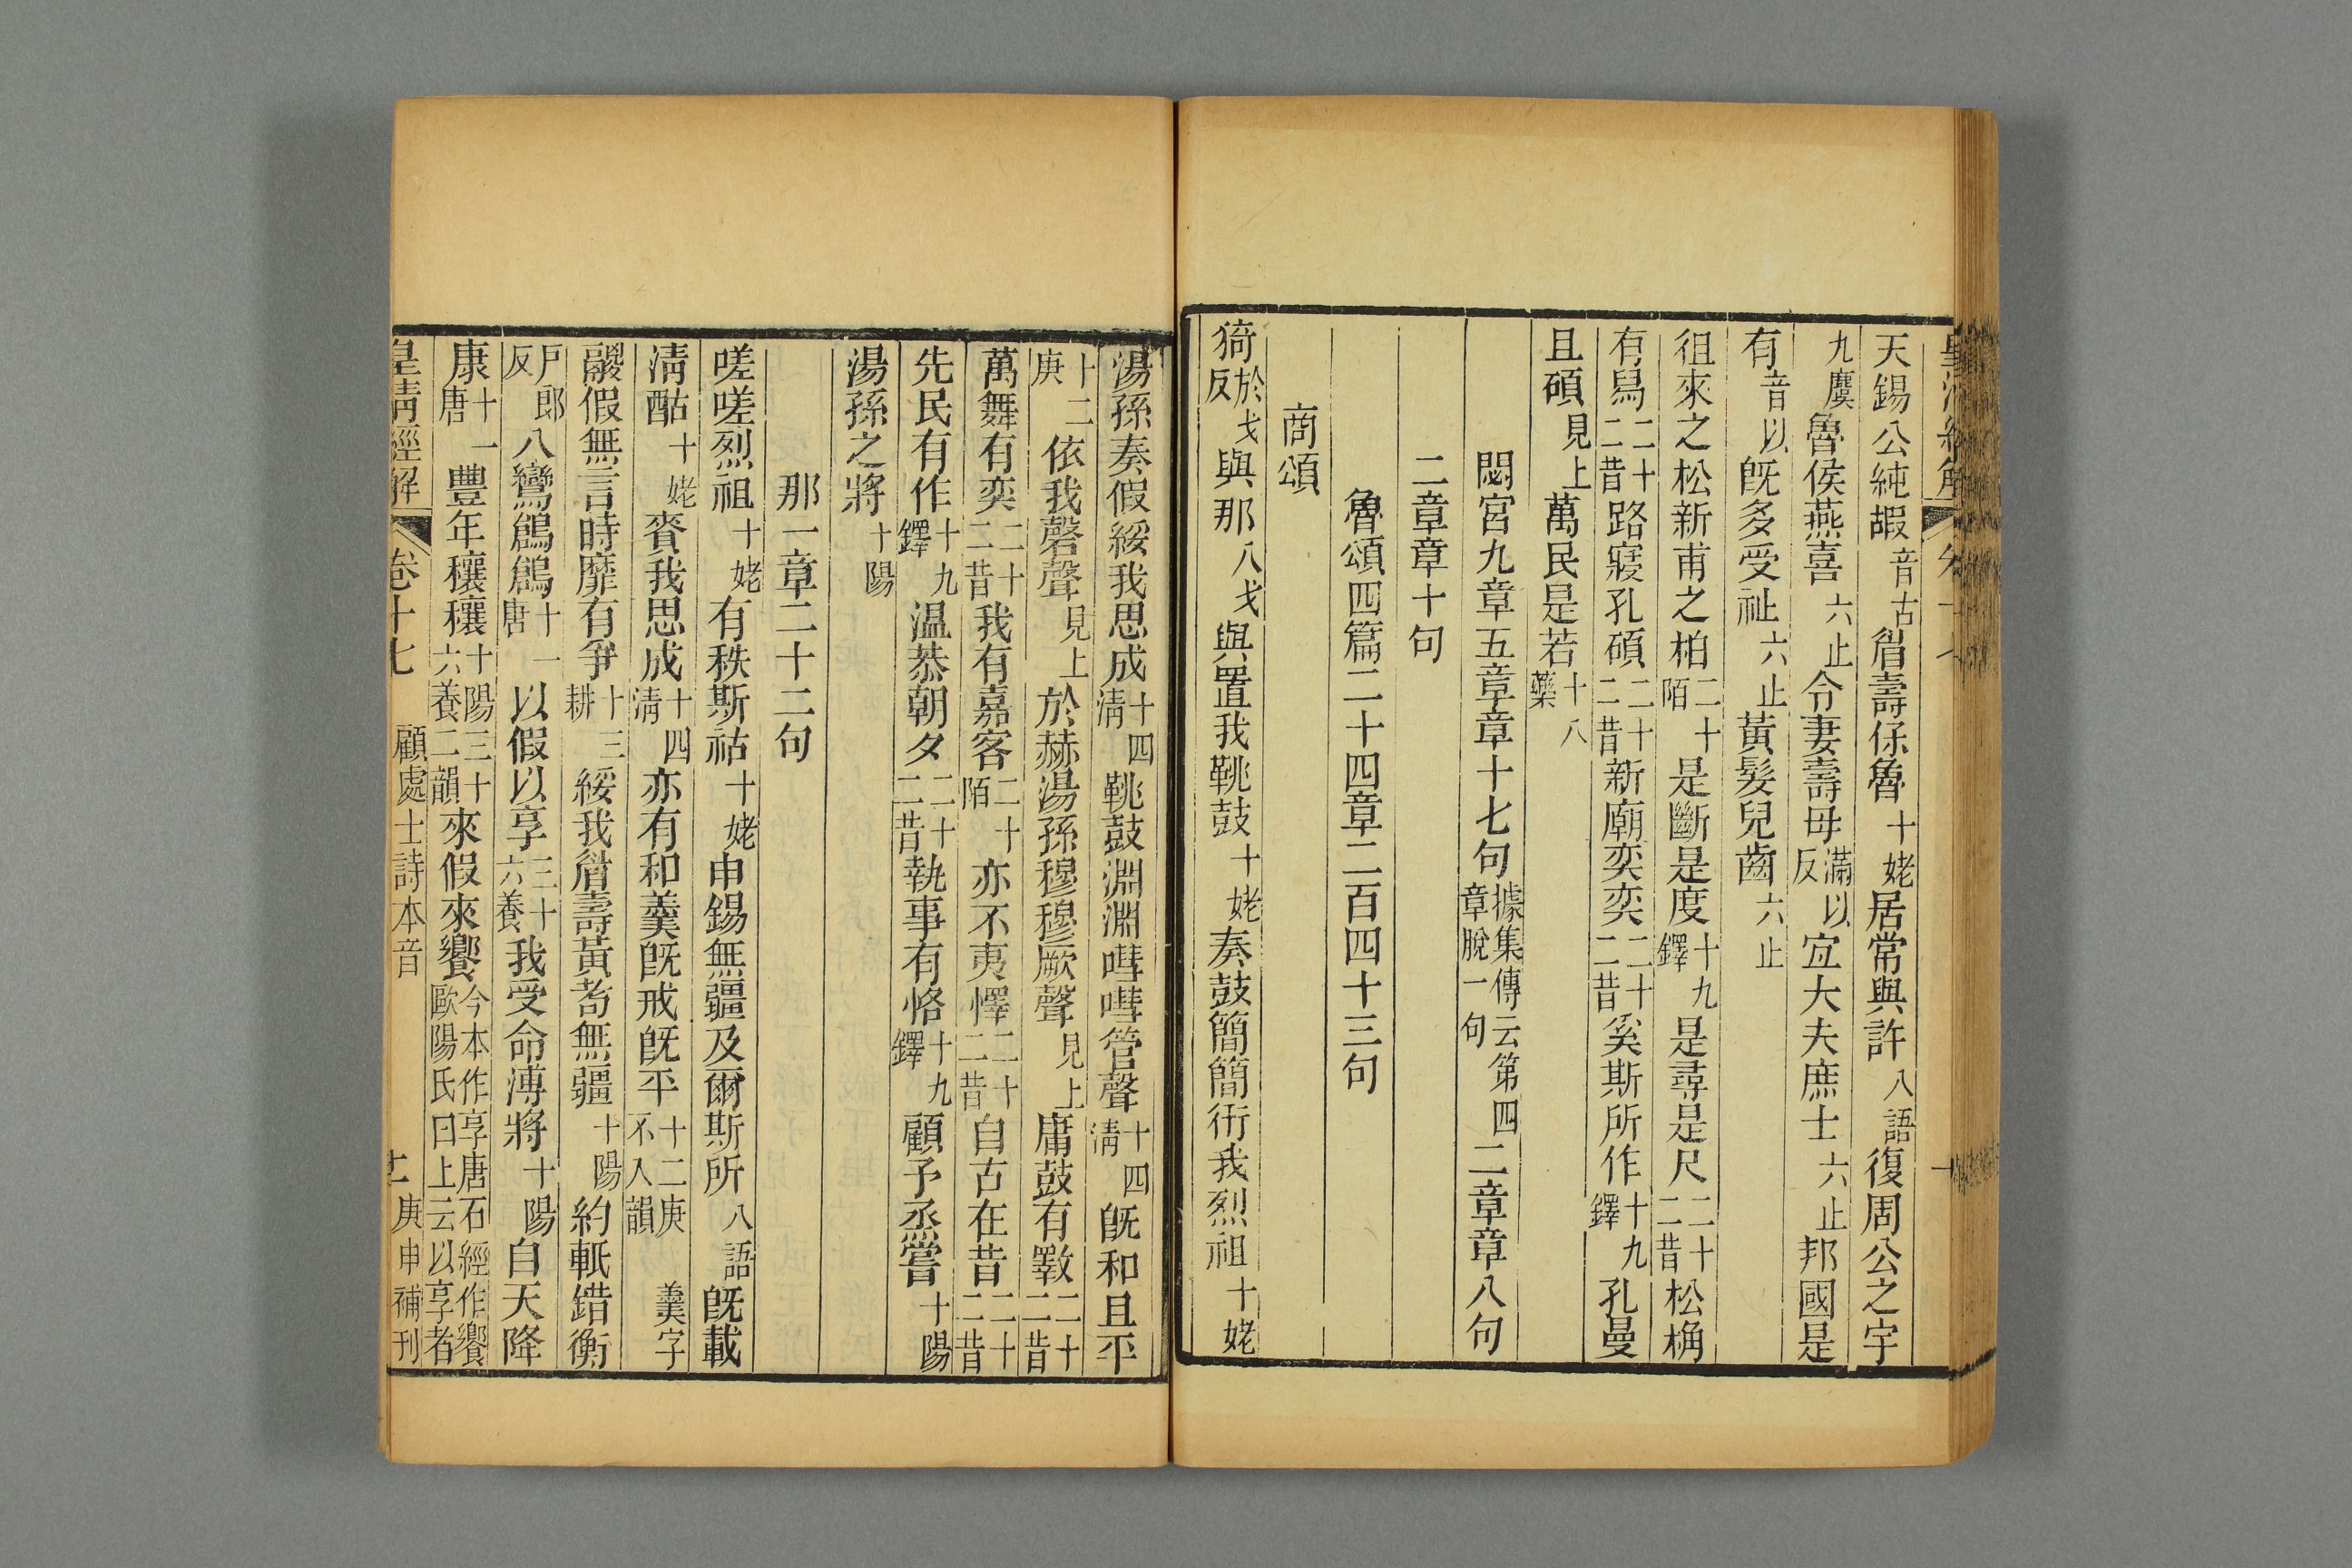 天錫公純嘏音古眉壽保魯十姥居常與許八語復周公之宇
九麌魯侯燕喜六止令妻壽母滿以反宜大夫庶士六止邦國是
有音以旣多受祉六止黃髮兒齒六止
徂來之松新甫之柏二十陌是斷是度十九鐸是尋是尺二十二昔松桷
有舄二十二昔路寢孔碩二十二昔新廟奕奕二十二昔奚斯所作十九鐸孔曼
且碩見上萬民是若十八藥
閟宮九章五章章十七句據集傳云第四章脫一句二章章八句
二章章十句
魯頌四篇二十四章二百四十三句
商頌
猗於戈反與那八戈與置我鞉鼓十姥奏鼓簡簡衎我烈祖十姥
湯孫奏假綏我思成十四淸鞉鼓淵淵嘒嘒管聲十四淸旣和且平
十二庚依我磬聲見上於赫湯孫穆穆厥聲見上庸鼓有斁二十二昔
萬舞有奕二十二昔我有嘉客二十陌亦不夷懌二十二昔自古在昔二十二昔
先民有作十九鐸温恭朝夕二十二昔執事有恪十九鐸顧予烝嘗十陽
湯孫之將十陽
那一章二十二句
嗟嗟烈祖十姥有秩斯祜十姥申錫無疆及爾斯所八語旣載
淸酤十姥賚我思成十四淸亦有和羹旣戒旣平十二庚羹字不入韻
鬷假無言時靡有爭十三耕綏我眉壽黃耇無疆十陽約軝錯衡
戶郎反八鸞鶬鶬十一唐以假以享三十六養我受命溥將十陽自天降
康十一唐豐年穰穰十陽三十六養二韻來假來饗今本作享唐石經作饗歐陽氏曰上云以享者
皇淸經解 卷十七 顧處士詩本音 十一 庚申補刊